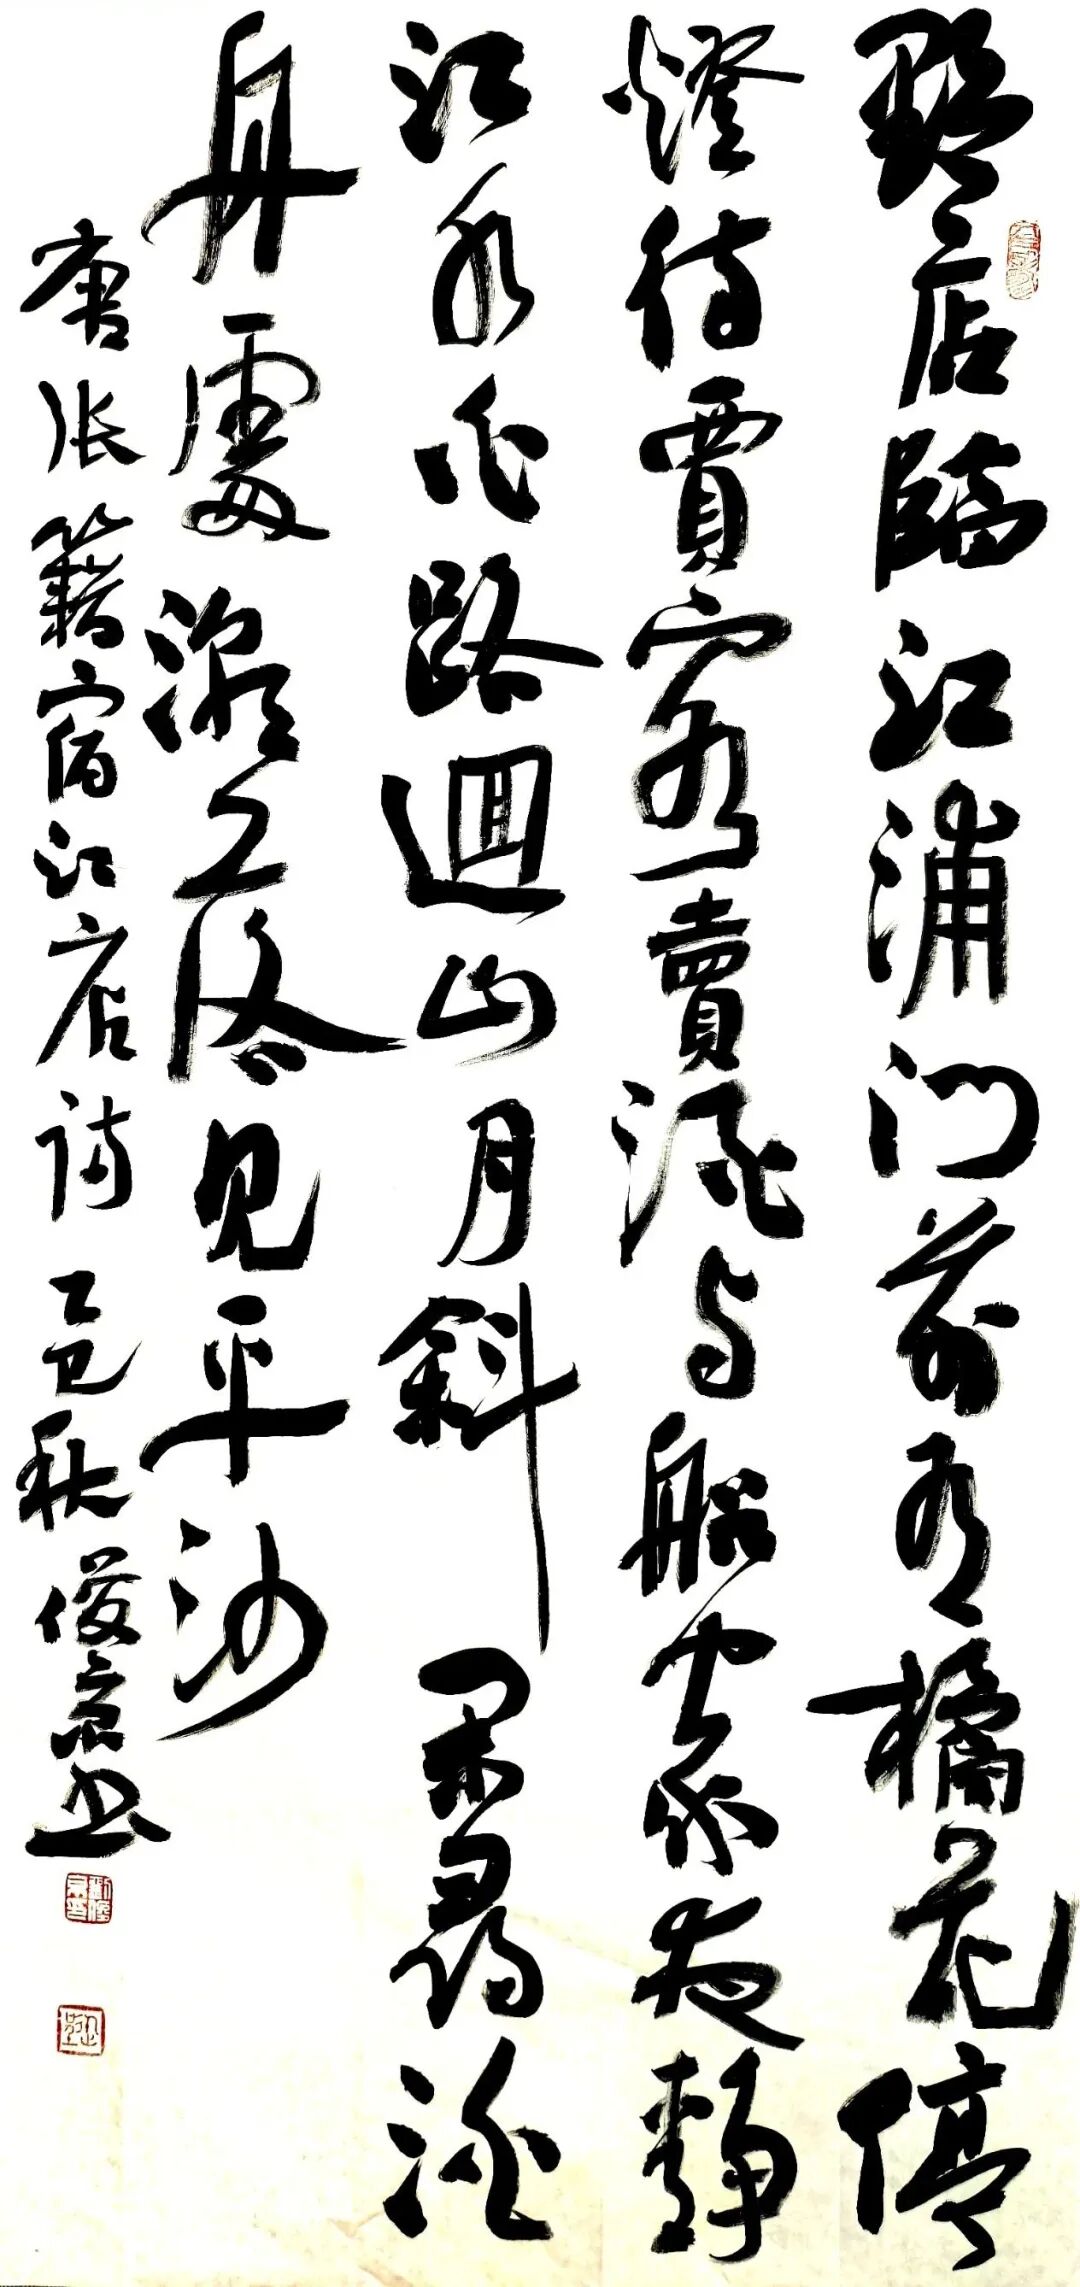 野店臨江浦门前有橘花停
燈待賈客賣酒与船家夜靜
江水白路迴山月斜閑尋泊
舟處潮落見平沙
唐張籍宿江店詩 乙巳秋 俊京书